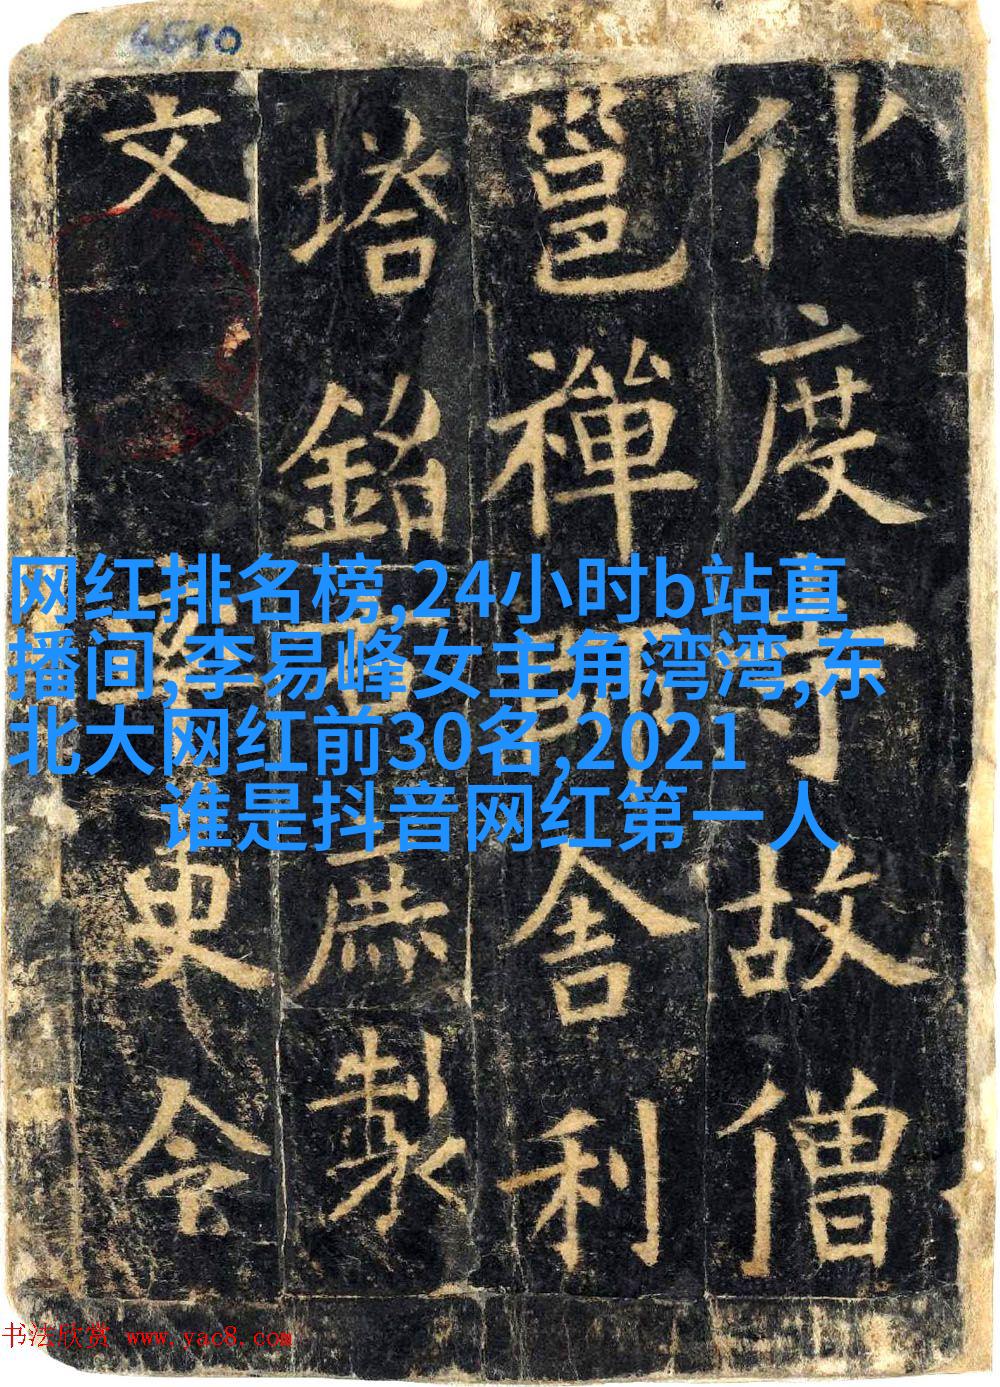 化度寺故僧
邕禪師舍利
塔銘庶製
文更令
网红排名榜,24小时b站直
播间,李易峰女主角湾湾,东
北大网红前30名,2021
谁是抖音网红第一人
书法欣赏 www.yac8.com